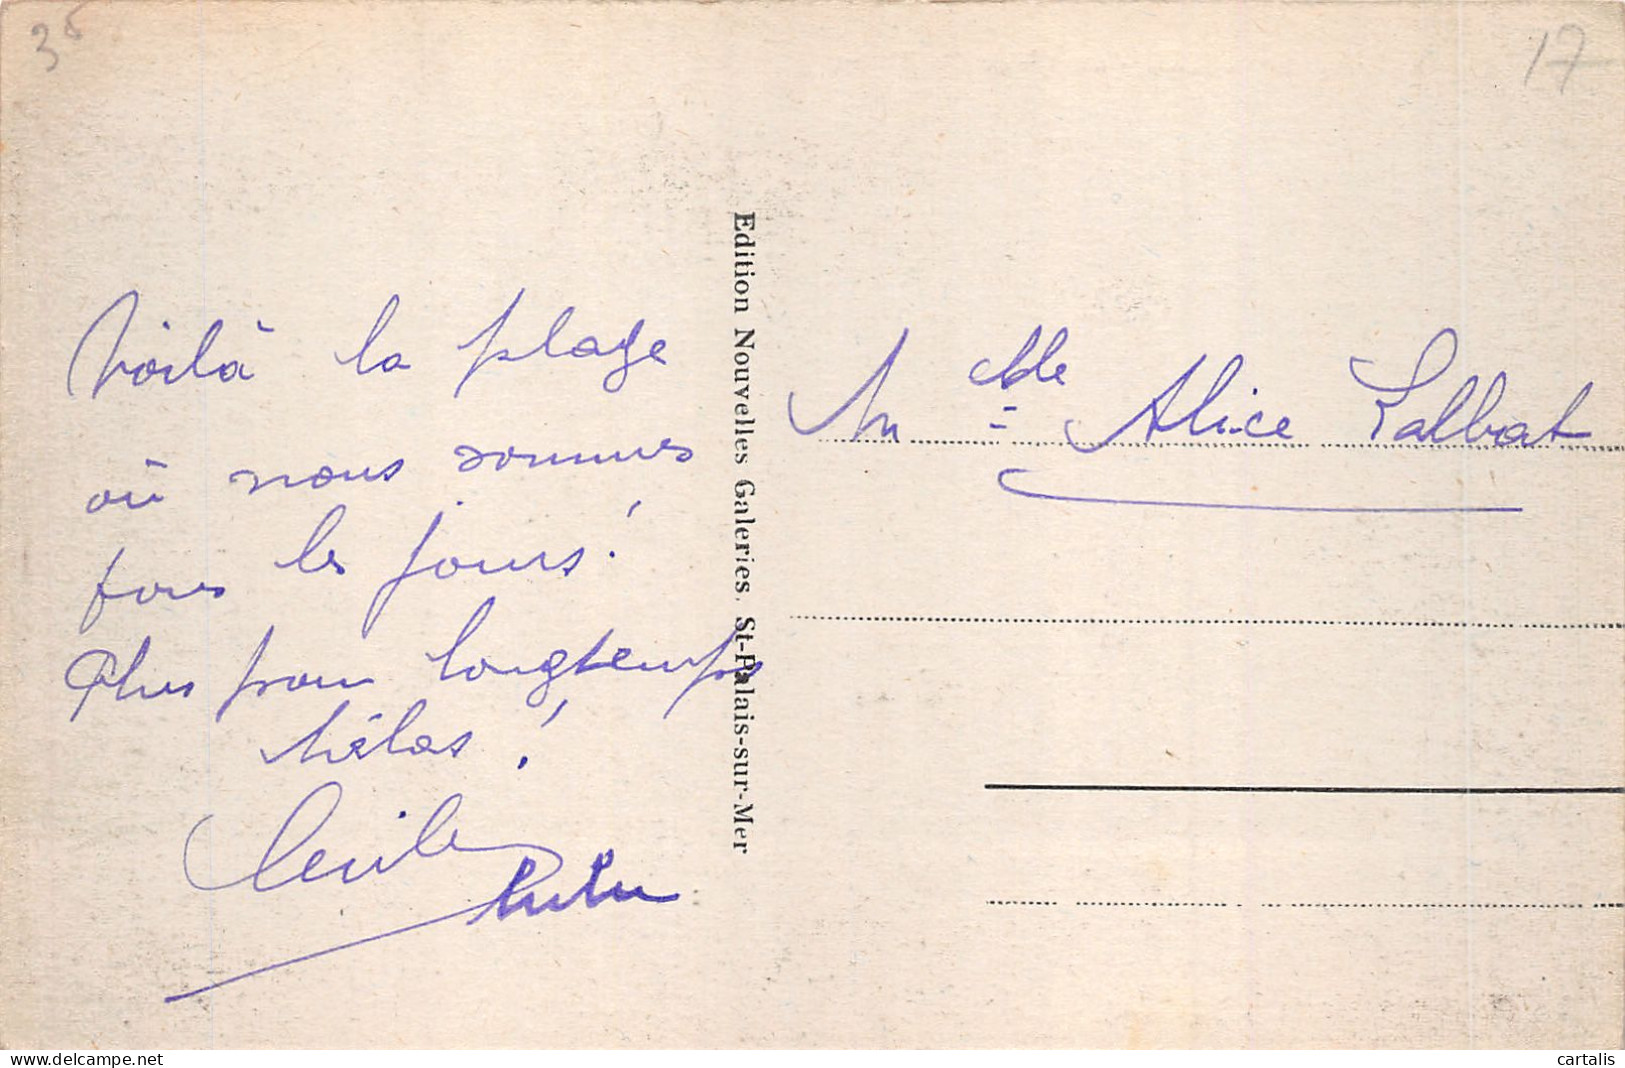 35
17
Voilà la plage
où nous sommes
tous les jours!
Plus pour longtemps
hélas!
Cécile
Lulu
Edition Nouvelles Galeries. St-Palais-sur-Mer
Melle Alice Talbot
delcampe.net
cartalis